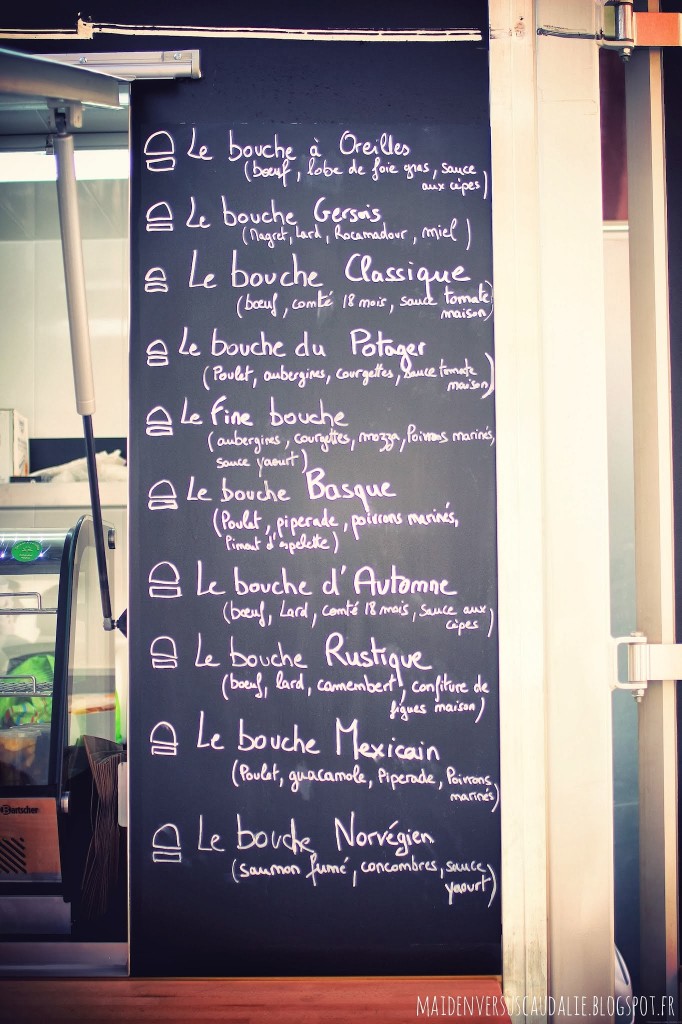 Le bouche à Oreilles
(bœuf, lobe de foie gras, sauce
aux cèpes)
Le bouche Gersois
(Magret, Lard, Rocamadour, miel)
Le bouche Classique
(bœuf, comté 18 mois, sauce tomate
maison)
Le bouche du Potager
(Poulet, aubergines, courgettes, sauce tomate
maison)
Le Fine bouche
(aubergines, courgettes, mozza, Poivrons marinés,
sauce yaourt)
Le bouche Basque
(Poulet, piperade, poivrons marinés,
Piment d'espelette)
Le bouche d'Automne
(bœuf, Lard, comté 18 mois, sauce aux
cèpes)
Le bouche Rustique
(bœuf, lard, camembert, confiture de
figues maison)
Le bouche Mexicain
(Poulet, guacamole, Piperade, Poivrons
marinés)
Le bouche Norvégien
(saumon fumé, concombres, sauce
yaourt)
Bartscher
MAIDENVERSUSCAUDALIE.BLOGSPOT.FR